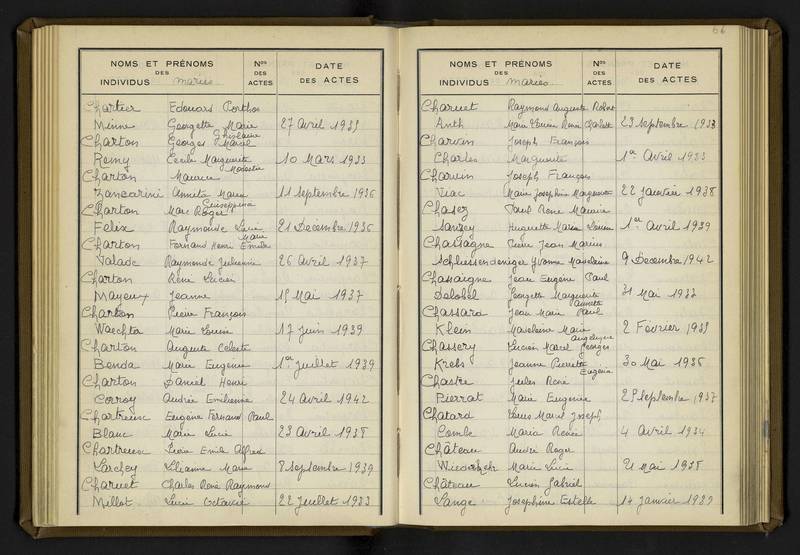 NOMS ET PRÉNOMS
DES
INDIVIDUS mariés
Nos
DES
ACTES
DATE
DES ACTES
Chartier Edouard Porthos
Minne Georgette Marie 27 avril 1935
Ghislaine
Charton Georges Marcel
Remy Cécile Marguerite 10 Mars 1933
Modestie
Charton Maurice
Zancarini Annita Maria 11 Septembre 1936
Giuseppina
Charton Marc Roger
Felix Raymonde Lucie 21 Decembre 1936
Marie
Charton Fernand Henri Emile
Valade Raymonde Julienne 26 avril 1937
Charton René Lucien
Mayeux Jeanne 15 Mai 1937
Charton Pierre François
Waechter Marie Louise 17 juin 1939
Charton Auguste Celeste
Benda Marie Eugenie 1er juillet 1939
Charton Daniel Henri
Corroy Andrée Emilienne 24 avril 1942
Chartreux Eugène Fernand Paul
Blanc Marie Lucie 23 avril 1938
Chartreux Pierre Emile Alfred
Larchey Lilianne Marie 8 Septembre 1939
Charuet Charles René Raymond
Millot Lucie Octavie 22 juillet 1933
66
NOMS ET PRÉNOMS
DES
INDIVIDUS mariés
Nos
DES
ACTES
DATE
DES ACTES
Charuet Raymond Auguste Robert
Anth Marie Louise Renée Charlotte 23 Septembre 1933
Charvin Joseph François
Charles Marguerite 1er Avril 1933
Charvin Joseph François
Viac Marie Josephine Marguerite 22 janvier 1938
Chasez Paul René Maurice
Sanzey Huguette Maria Louise 1er Avril 1939
Chassagne Pierre Jean Marius
Schliessendeniger Yvonne Madeleine 9 Decembre 1942
Chassaigne Jean Eugène Paul
Delobel Georgette Marguerite 31 Mai 1932
Annette
Chassard Jean Marie Paul
Klein Madeleine Marie 2 Février 1935
Angelique
Chassery Lucien Marcel Georges
Krebs Jeanne Pierrette 30 Mai 1936
Eugenie
Chastre Jules René
Pierrat Marie Eugenie 25 Septembre 1937
Chatard Louis Marcel Joseph
Combe Maria Renée 4 avril 1934
Château André Roger
Wiedekehr Marie Lucie 21 Mai 1938
Château Lucien Gabriel
Lange Josephine Estelle 14 janvier 1939